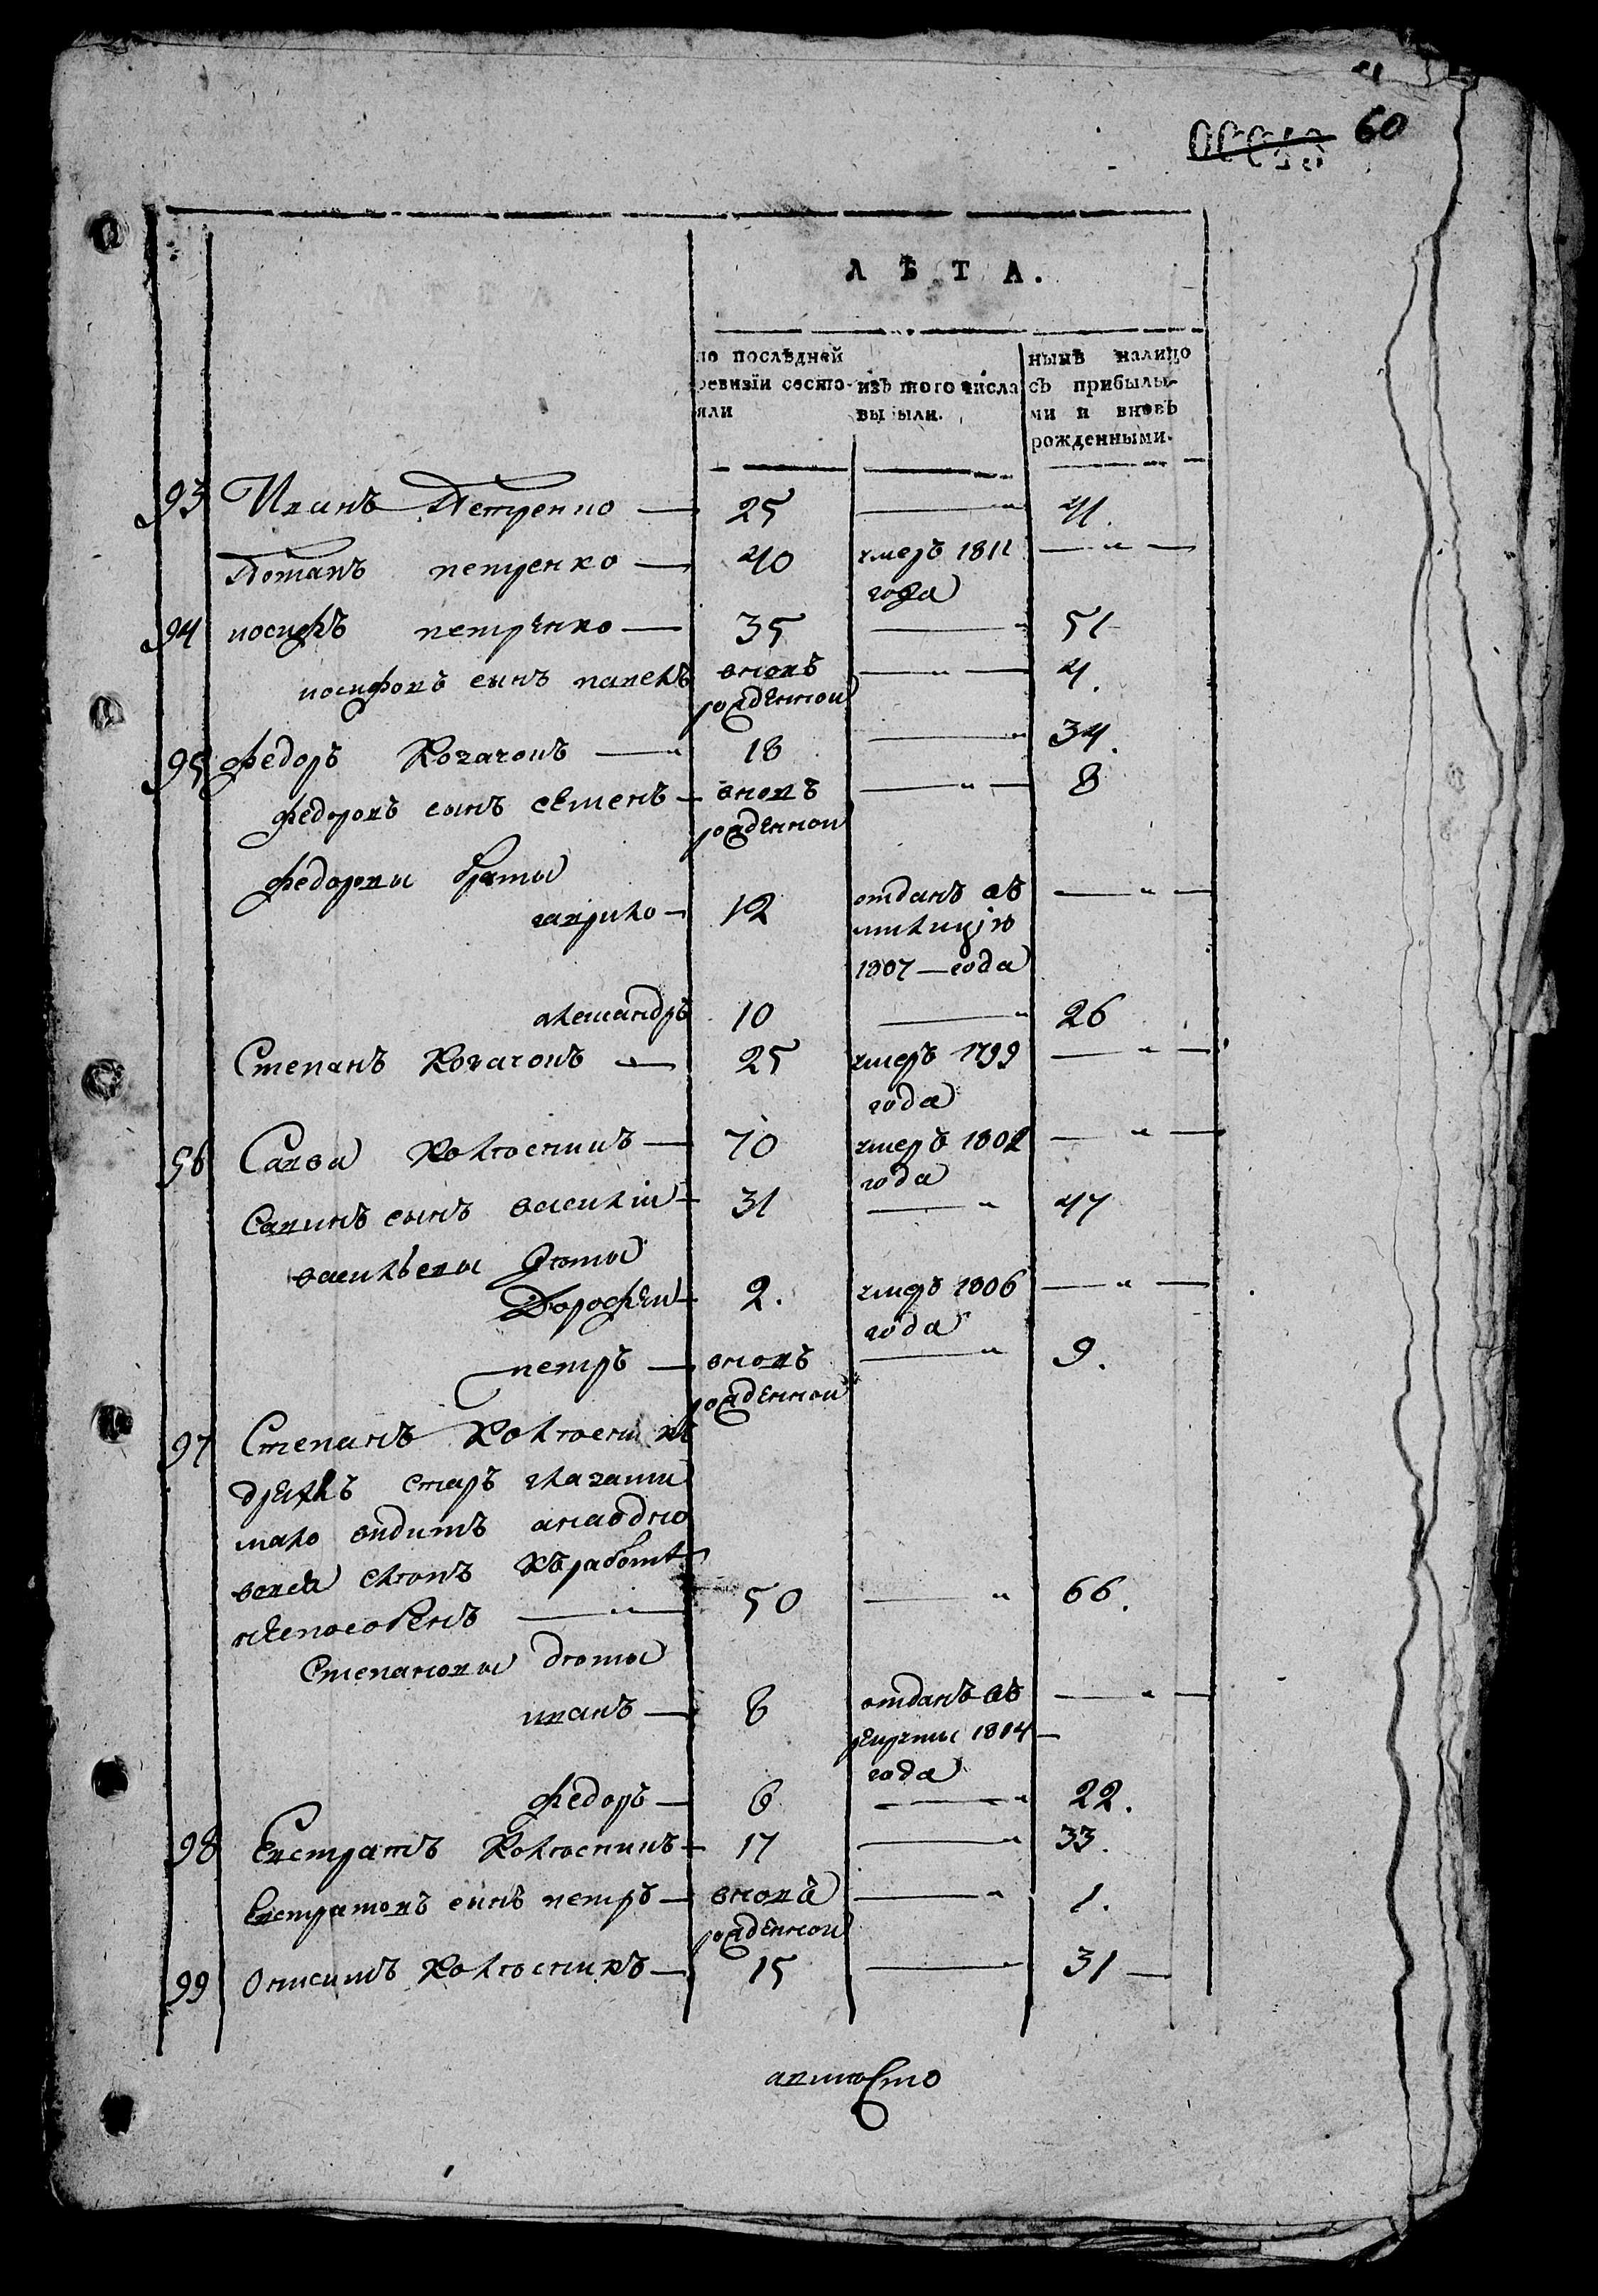 60
ЛѢТА.
по послѣдней
ревизїи состо-
яли
изъ того числа
выбыли.
нынѣ налицо
съ прибылы-
ми и вновь
рожденными.
93 Иванъ Петренко — 25 — 41.
Потапъ петренко — 40 умеръ 1811 — " —
года
94 иосифъ петренко — 35 — 51
иосифовъ сынъ павелъ вновъ — " — 4.
рожденнои
95 федоръ Козачокъ — 18 — 34.
федоровъ сынъ семенъ — вновъ — " — 8
рожденнои
федоровы братья
гаврило — 12 отданъ въ — " —
милицiю
1807 — года
александръ 10 — 26
Степанъ Козачокъ — 25 умеръ 1799 — " —
года
96 Савва Колюсникъ — 70 умеръ 1802 — " —
года
Савинъ сынъ василiи — 31 — " 47
васильевы дети
Дорофеи — 2. умеръ 1806 — " —
года
петръ — вновъ — " 9.
рожденнои
97 Степанъ Колюсникъ
дряхлъ старъ глазами
мало видитъ
къ работѣ
неспособенъ — " — 50 — " 66.
Степановы дети
иванъ — 8 отданъ въ — " —
рекруты 1814 —
года
федоръ — 6 — 22.
98 Евстратъ Колюсникъ — 17 — 33.
Евстратовъ сынъ петръ — вновъ — 1.
рожденнои
99 Онисимъ Колюсникъ — 15 — 31 —